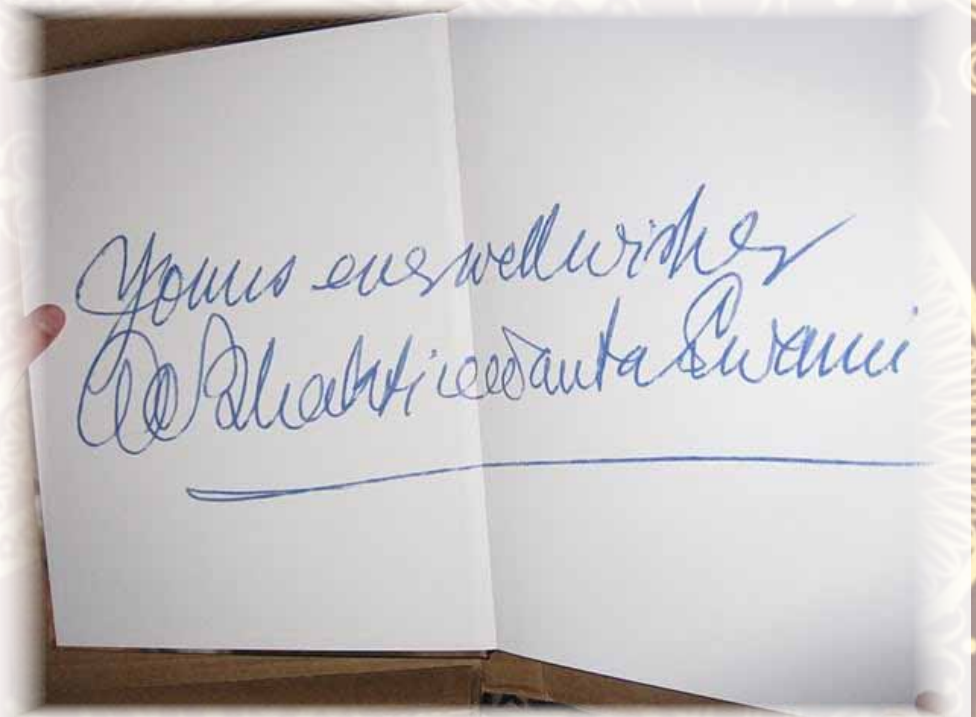 Yours ever well wisher
AC Bhaktivedanta Swami